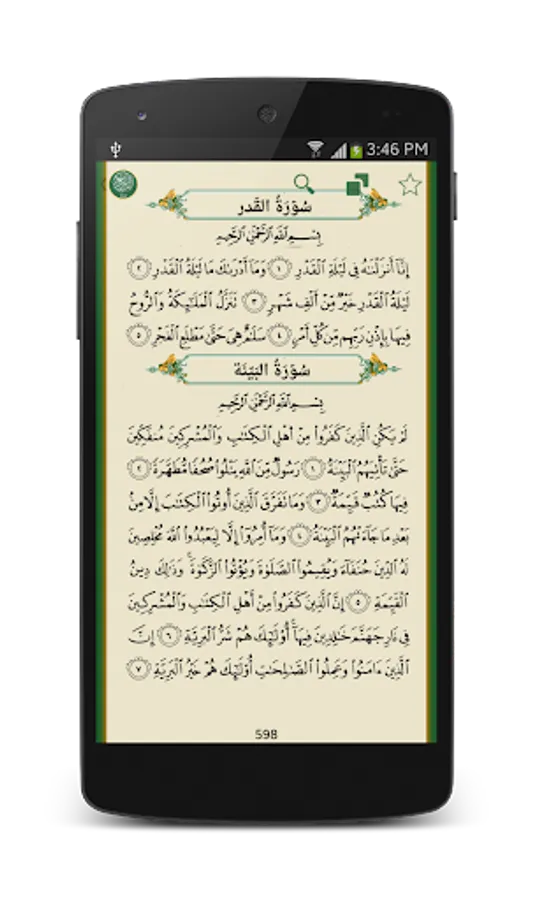 3:46 PM
سُورَةُ القَدر
بِسْمِ ٱللَّهِ ٱلرَّحْمَٰنِ ٱلرَّحِيمِ
إِنَّآ أَنزَلْنَٰهُ فِى لَيْلَةِ ٱلْقَدْرِ ١ وَمَآ أَدْرَىٰكَ مَا لَيْلَةُ ٱلْقَدْرِ ٢
لَيْلَةُ ٱلْقَدْرِ خَيْرٌ مِّنْ أَلْفِ شَهْرٍ ٣ تَنَزَّلُ ٱلْمَلَٰٓئِكَةُ وَٱلرُّوحُ
فِيهَا بِإِذْنِ رَبِّهِم مِّن كُلِّ أَمْرٍ ٤ سَلَٰمٌ هِىَ حَتَّىٰ مَطْلَعِ ٱلْفَجْرِ ٥
سُورَةُ البَيّنَة
بِسْمِ ٱللَّهِ ٱلرَّحْمَٰنِ ٱلرَّحِيمِ
لَمْ يَكُنِ ٱلَّذِينَ كَفَرُوا۟ مِنْ أَهْلِ ٱلْكِتَٰبِ وَٱلْمُشْرِكِينَ مُنفَكِّينَ
حَتَّىٰ تَأْتِيَهُمُ ٱلْبَيِّنَةُ ١ رَسُولٌ مِّنَ ٱللَّهِ يَتْلُوا۟ صُحُفًا مُّطَهَّرَةً ٢
فِيهَا كُتُبٌ قَيِّمَةٌ ٣ وَمَا تَفَرَّقَ ٱلَّذِينَ أُوتُوا۟ ٱلْكِتَٰبَ إِلَّا مِنۢ
بَعْدِ مَا جَآءَتْهُمُ ٱلْبَيِّنَةُ ٤ وَمَآ أُمِرُوٓا۟ إِلَّا لِيَعْبُدُوا۟ ٱللَّهَ مُخْلِصِينَ
لَهُ ٱلدِّينَ حُنَفَآءَ وَيُقِيمُوا۟ ٱلصَّلَوٰةَ وَيُؤْتُوا۟ ٱلزَّكَوٰةَ ۚ وَذَٰلِكَ دِينُ
ٱلْقَيِّمَةِ ٥ إِنَّ ٱلَّذِينَ كَفَرُوا۟ مِنْ أَهْلِ ٱلْكِتَٰبِ وَٱلْمُشْرِكِينَ
فِى نَارِ جَهَنَّمَ خَٰلِدِينَ فِيهَآ ۚ أُو۟لَٰٓئِكَ هُمْ شَرُّ ٱلْبَرِيَّةِ ٦ إِنَّ
ٱلَّذِينَ ءَامَنُوا۟ وَعَمِلُوا۟ ٱلصَّٰلِحَٰتِ أُو۟لَٰٓئِكَ هُمْ خَيْرُ ٱلْبَرِيَّةِ ٧
598